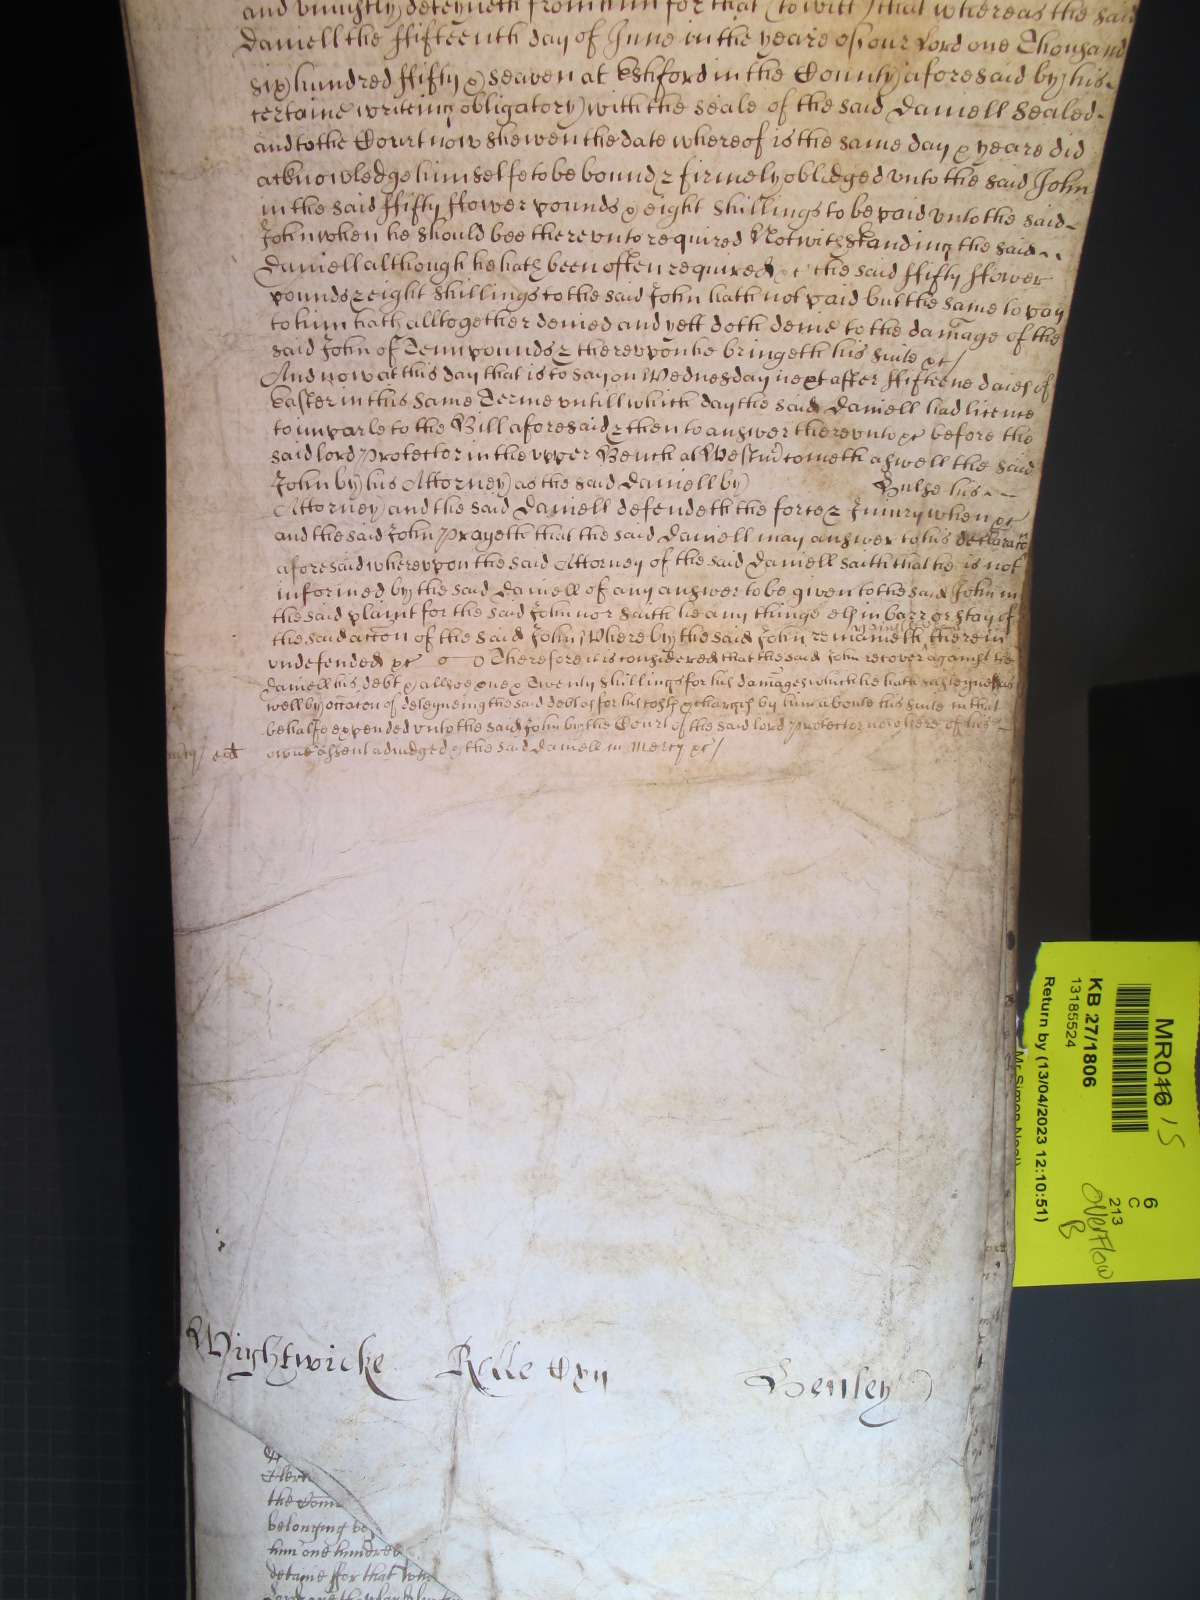 and uniustly deteyneth from him for that (to witt) that whereas the said
Daniell the ffifteenth day of June in the yeare of our Lord one Thousand
six hundred ffifty & seaven at Eshford in the County aforesaid by his
certaine writing obligatory with the seale of the said Daniell Sealed
and to the Court now shewen the date whereof is the same day & yeare did
acknowledge himselfe to be bound & firmely obliedged unto the said John
in the said ffifty ffower pounds & eight shillings to be paid unto the said
John when he should bee thereunto required Notwithstanding the said
Daniell although he hath been often required &c the said ffifty ffower
pounds & eight shillings to the said John hath not paid but the same to pay
to him hath alltogether denied and yett doth denie to the damage of the
said John of Tenn pounds & thereupon he bringeth his suite &c/
And now at this day that is to say on Wednesday next after ffifteene daies of
Easter in this same Terme untill which day the said Daniell had licence
to imparle to the Bill aforesaid & then to answer thereunto &c before the
said lord Protector in the upper Bench at Westmr cometh aswell the said
John by his Attorney as the said Daniell by Hulse his
Attorney and the said Daniell defendeth the force & Iniury when &c
and the said John prayeth that the said Daniell may answer to his declaracon
aforesaid whereupon the said Attorney of the said Daniell saith that he is not
informed by the said Daniell of any answer to be given to the said John in
the said plaint for the said John nor saith he any thinge els in barr or stay of
the said accon of the said John Whereby the said John remaineth therein
undefended &c Therefore it is considered that the said John recover against the
Daniell his debt & allsoe one & Twenty shillings for his damages which he hath susteyned as
well by occacon of deteyneing the said debt as for his costs & charges by him aboute his suite in that
behalfe expended unto the said John by the Court of the said lord Protector now here of his
owne assent adiudged & the said Daniell in Mercy &c/
Wightwicke Rolle Oxn Henley
Clerk
the Com
belonging to
him one hundred
detaine ffor that whe
MR046 15
KB 27/1806
13185524
Return by (13/04/2023 12:10:51)
Mr Simon Neal
6
C
213
Overflow
B